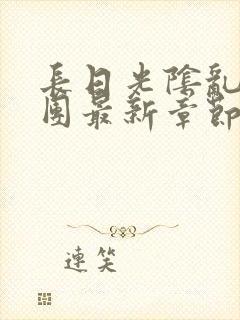 長日光陰亂
團最新章節
連笑